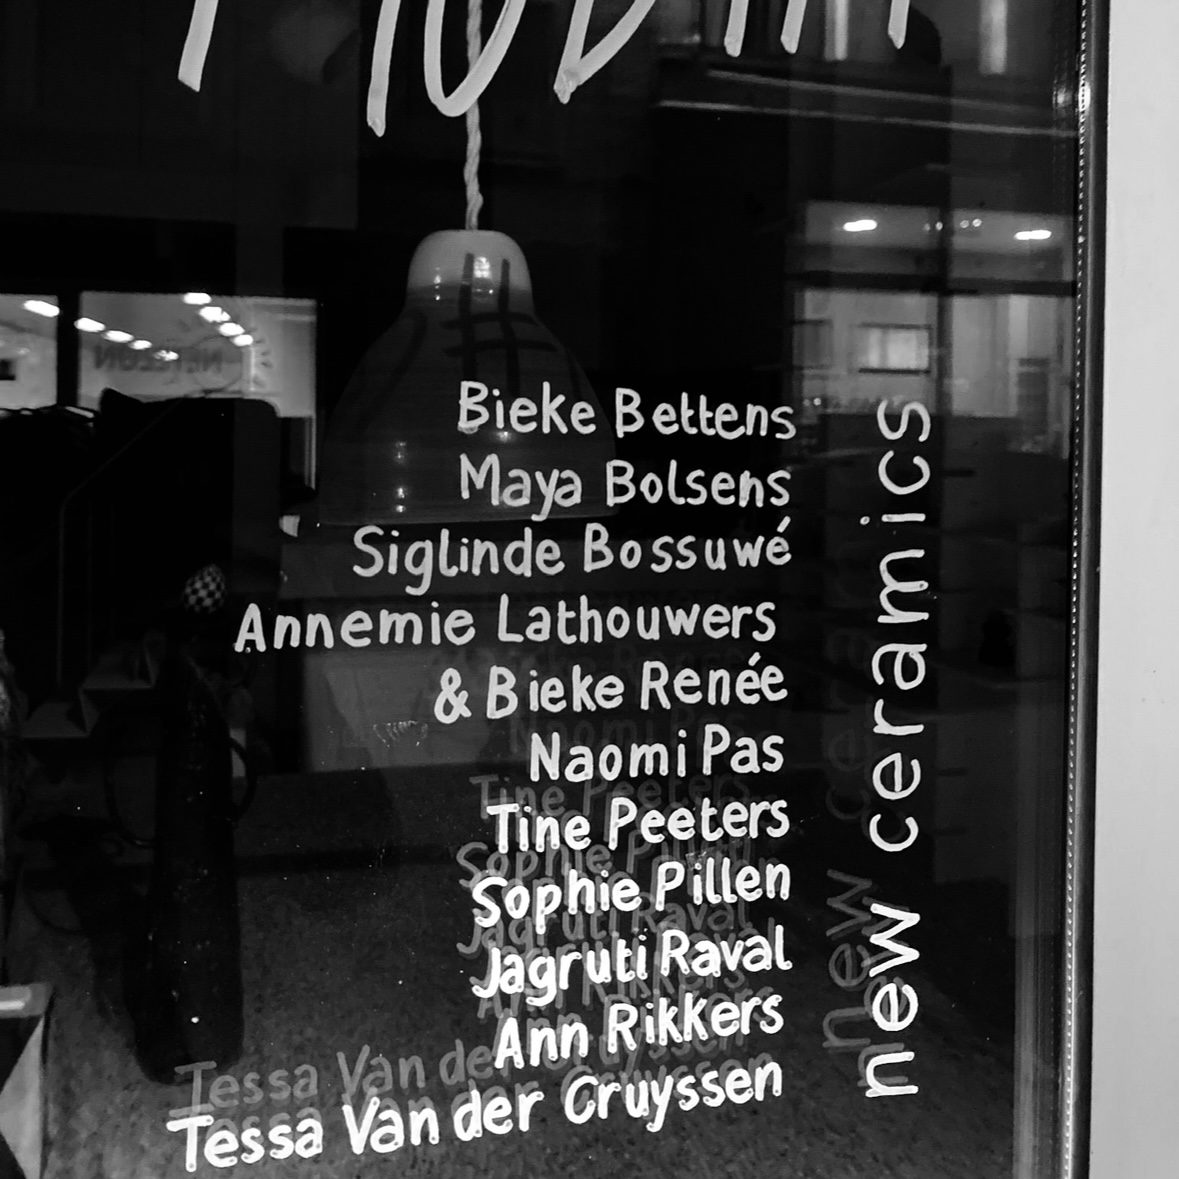 Bieke Bettens
Maya Bolsens
Siglinde Bossuwé
Annemie Lathouwers
& Bieke Renée
Naomi Pas
Tine Peeters
Sophie Pillen
Jagruti Raval
Ann Rikkers
Tessa Van der Cruyssen
new ceramics